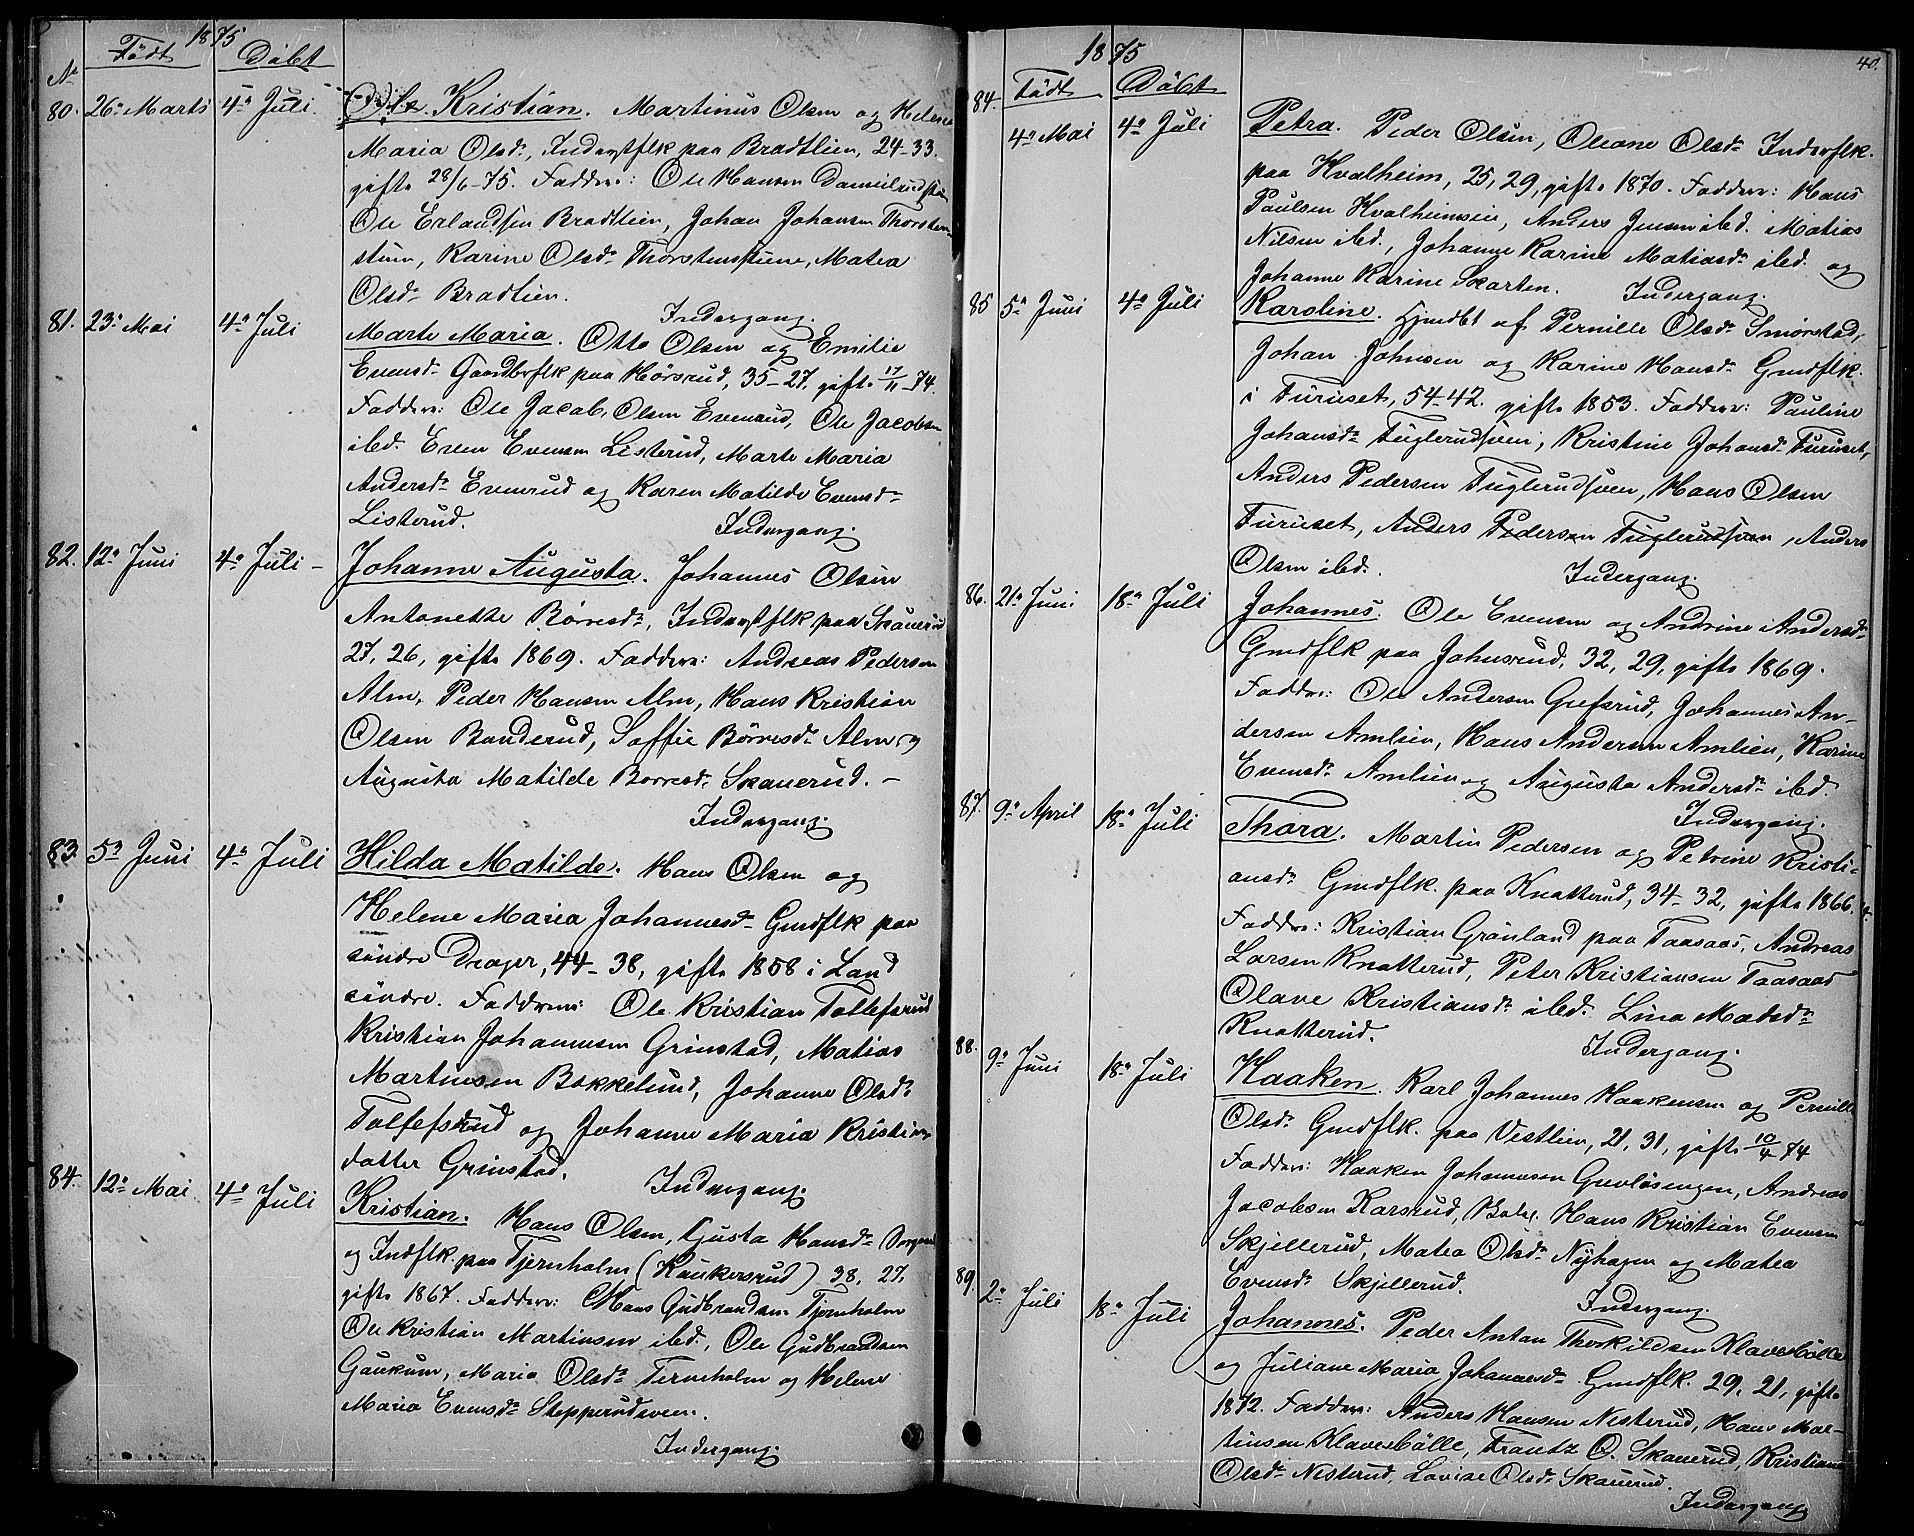 1875
Født Døbt
No
80. 26de Marts 4de Juli. Ole Kristian. Martinus Olsen og Helene
Maria Olsdr, Inderstflk paa Bradtlien, 24-33.
gifte 28/6-75. Faddere: Ole Hansen
Ole Erlandsen Bradtlien, Johan Johansen Thorsten-
stuen, Karine Olsdr Thorstensstuene, Matea
Olsdr Bradlien.
Indergang.
81. 23de Mai 4de Juli Marte Maria. Otto Olsen og Emilie
Evensdr Gaardbrflk paa Hörsrud, 35-27, gifte 17/11-74.
Faddere: Ole Jacob Olsen Evenrud, Ole Jacobsen
ibd. Even Evensen Listerud, Marte Maria
Andersdr Evenrud og Karen Matilde Evensdr
Listerud.
Indergang.
82. 12te Juni 4de Juli - Johanne Augusta. Johannes Olsen
Antonette Børresdr, Inderstflk paa Skauerud
27, 26, gifte 1869. Faddere: Andreas Pedersen
Alm, Peder Hansen Alm, Hans Kristian
Olsen Banderud, Soffie Børresdr Alm og
Augusta Matilde Borresdr Skauerud. -
Indergang.
83. 5te Juni 4de Juli Hilda Matilde. Hans Olsen og
Helene Maria Johannesdr Gmdflk paa
söndre Drager, 44-38, gifte 1858 i Land
söndre. Faddere: Ole Kristian Tollefsrud
Kristian Johannesen Grinstad, Matias
Martinsen Bakkelund, Johanne Olsdr
Tollefsrud og Johanne Maria Kristian-
datter Grinstad.
Indergang.
84. 12te Mai 4de Juli Kristian. Hans Olsen, Gusta Hansdr
og Indflk paa Tjernholm (Haukersrud) 38, 27,
gifte 1867. Faddere: Hans Gudbrandsen Tjernholm
Ole Kristian Martinsen ibd, Ole Gudbrandsen
Gaukum, Maria Olsdr Terneholm og Helene
Maria Evensdr Stepperudeven.
Indergang.
40.
1875
84. Født Døbt
4de Mai 4de Juli Petra. Peder Olsen, Oleane Olsdr Inderflk.
paa Hvalheim, 25, 29, gifte 1870. Faddere: Hans
Paulsen Hvalheimseie, Anders Jensen ibd. Matias
Nilsen ibd, Johanne Karine Matiasdr ibd. og
Johanne Karine Skarten. Indergang.
85 5te Juni 4de Juli Karoline. Hjmdbt af Pernille Olsdr Smørstad,
Johan Johnsen og Karine Hansdr Gmdflk.
i Furuset, 54-42. gifte 1853. Faddere: Pauline
Johansdr Fuglerudsven, Kristine Johansdr Furuset,
Anders Pedersen Fuglerudsven, Hans Olsen
Furuset, Anders Pedersen Fuglerudsven, Anders
Olsen ibd. Indergang.
86. 21de Juni 18de Juli Johannes. Ole Evensen og Andrine Andersdr
Gmdflk paa Johnsrud, 32, 29, gifte 1869.
Faddere: Ole Andersen Gufsrud, Johannes An-
dersen Amlien, Hans Andersen Amlien, Karine
Evensdr Amlien og Augusta Andersdr ibd.
Indergang.
87. 9de April 18de Juli Thora. Martin Pedersen og Petrine Kristi-
ansdr Gmdflk. paa Knatterud, 34-32, gifte 1866.
Faddere: Kristian Grönland paa Taasaas, Andreas
Larsen Knatterud, Peter Kristiansen Taasaas
Olave Kristiansdr ibd. Lina Matsdr
Knatterud.
Indergang.
88. 9de Juni 18de Juli Haaken. Karl Johannes Haakensen og Pernille
Olsdr Gmdflk. paa Vestlien, 21, 31, gifte 10/4 74
Faddere: Haaken Johannesen Gunløsengen, Andreas
Jacobsen Karsrud, Hans Kristian Evensen
Skjellerud, Matea Olsdr Nyhagen og Matea
Evensdr Skjellerud.
Indergang.
89. 2de Juli 18de Juli Johannes. Peder Anton Thorkildsen Klavesbölle
og Juliane Maria Johannesdr Gmdflk. 29, 21, gifte
1872. Faddere: Anders Hansen Nesterud, Hans Mar-
tinsen Klavesbölle, Frantz O. Skauerud, Kristiane
Olsdr Nesterud, Lovise Olsdr Skauerud.
Indergang